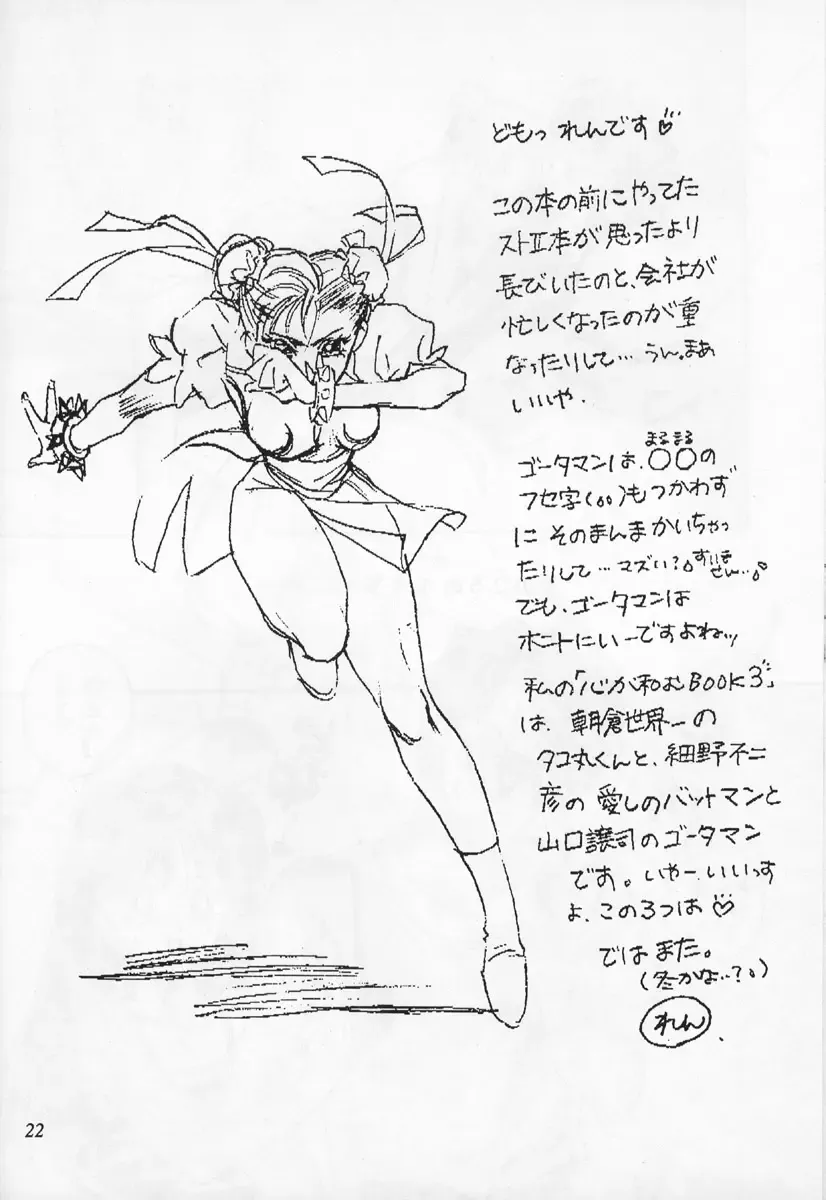 どもっ れんです♡
この本の前にやってた
ストⅡ本が思ったより
長びいたのと、会社が
忙しくなったのが重
なったりして…うん、まあ
いいや.
まるまる
ゴータマンは、○○の
フセ字(。。)もつかわず
に そのまんまかいちゃっ
たりして…マズい?。すいませ
せん…。
でも、ゴータマンは
ホントにいーですよねッ
私の「心が和むBOOK3」
は、朝倉世界一の
タコ丸くんと、細野不二
彦の 愛しのバットマンと
山口譲司のゴータマン
です。いやー、いいっす
よ、この3つは♡
ではまた。
(冬かな…?。)
れん.
22